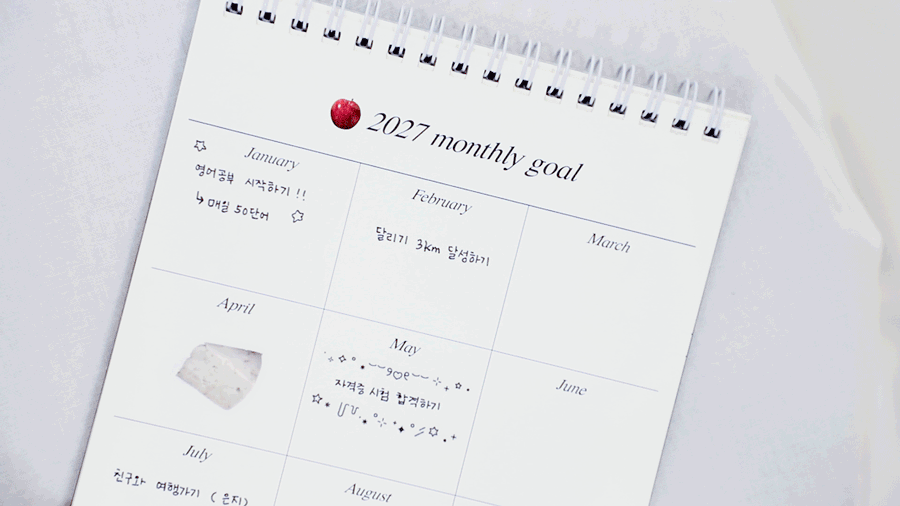 2027 monthly goal
January
영어공부 시작하기 !!
↳ 매월 50단어
February
달리기 3km 달성하기
March
April
May
자격증 시험 합격하기
June
July
친구와 여행가기 ( 은지)
August